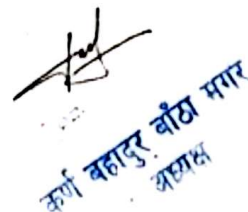 कर्ण बहादुर बाँठा मगर
अध्यक्ष